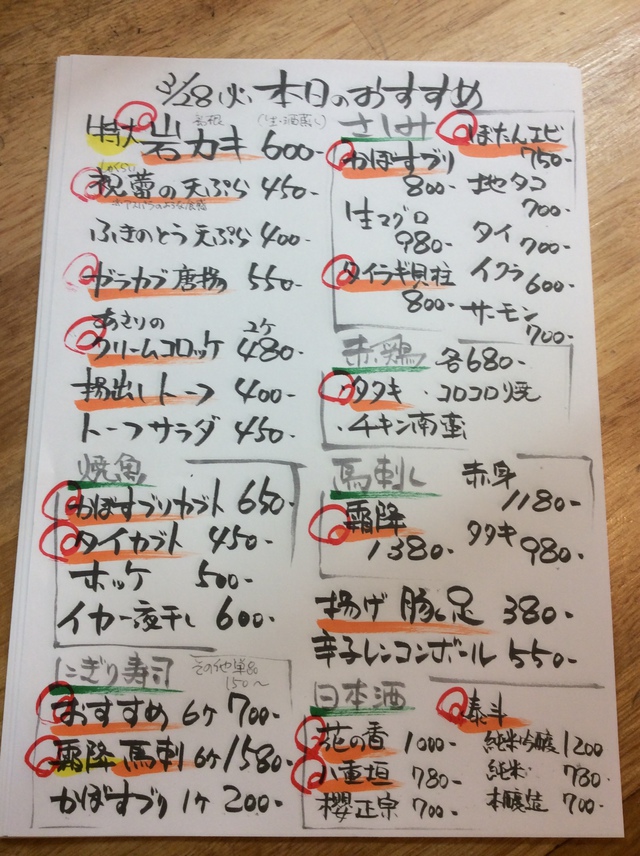 3/28(火) 本日のおすすめ
特大 岩カキ 600-
祝蕾の天ぷら 450-
ふきのとう天ぷら 400-
ガラカブ唐揚 550-
あさりの
クリームコロッケ 2ケ 480-
揚出しトーフ 400-
トーフサラダ 450-
焼魚
かぼすブリカブト 650-
タイカブト 450-
ホッケ 500-
イカ一夜干し 600-
にぎり寿司
おすすめ 6ケ 700-
霜降馬刺 6ケ 1580-
かぼすブリ 1ケ 200-
さしみ
かぼすブリ 800-
生マグロ 980-
タイラギ貝柱 800-
ぼたんエビ 750-
地タコ 700-
タイ 700-
イクラ 600-
サーモン 700-
赤鶏 各680-
・タタキ ・コロコロ焼
・チキン南蛮
馬刺し
赤身 1180-
霜降 1380-
タタキ 980-
揚げ豚足 380-
辛子レンコンボール 550-
日本酒
花の香 1000-
八重垣 780-
櫻正宗 700-
泰斗
純米吟醸 1200
純米 730-
本醸造 700-